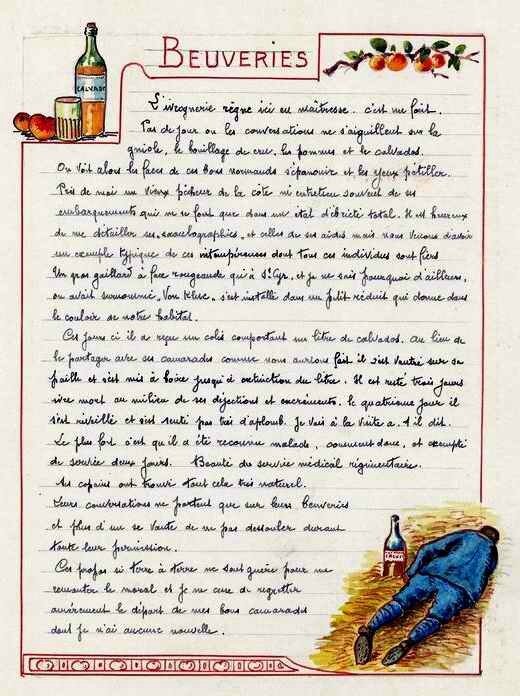 BEUVERIES
CALVADOS
L'ivrognerie règne ici en maîtresse. c'est un fait.
Pas de jour ou les conversations ne s'aiguillent sur la
gniole, le bouillage de cru, les pommes et le calvados.
On voit alors les faces de ces bons normands s'épanouir et les yeux pétiller.
Près de moi un vieux pêcheur de la côte m'entretien souvent de ses
embarquements qui ne se font que dans un état d'ébriété total. Il est heureux
de me détailler ses et celles de ses aides mais nous venons d'avoir
un exemple typique de ces intempérances dont tous ces individus sont fiers
Un gros gaillard à face rougeaude qui à St Cyr, et je ne sais pourquoi d'ailleurs,
on avait surnommé, Von Kluc, s'est installé dans un petit réduit qui donne dans
le couloir de notre habitat.
Ces jours ci il a reçu un colis comportant un litre de calvados. Au lieu de
le partager avec ses camarades comme nous aurions fait il s'est vautré sur sa
paille et s'est mis à boire jusqu'à extinction du litre. Il est resté trois jours
ivre mort au milieu de ses déjections et excréments. le quatrième jour il
s'est réveillé et s'est senti pas très d'aplomb. Je vais à la visite a-t-il dit.
Le plus fort c'est qu'il a été reconnu malade, consultant, et exempté
de service deux jours. Beauté du service médical régimentaire.
Les copains ont trouvé tout cela très naturel.
Leurs conversations ne portent que sur leurs beuveries
et plus d'un se vante de ne pas dessouler durant
toute leur permission.
Ces propos si terre à terre ne sont guère pour me
remonter le moral et je ne cesse de regretter
amèrement le départ de mes bons camarades
dont je n'ai aucune nouvelle.